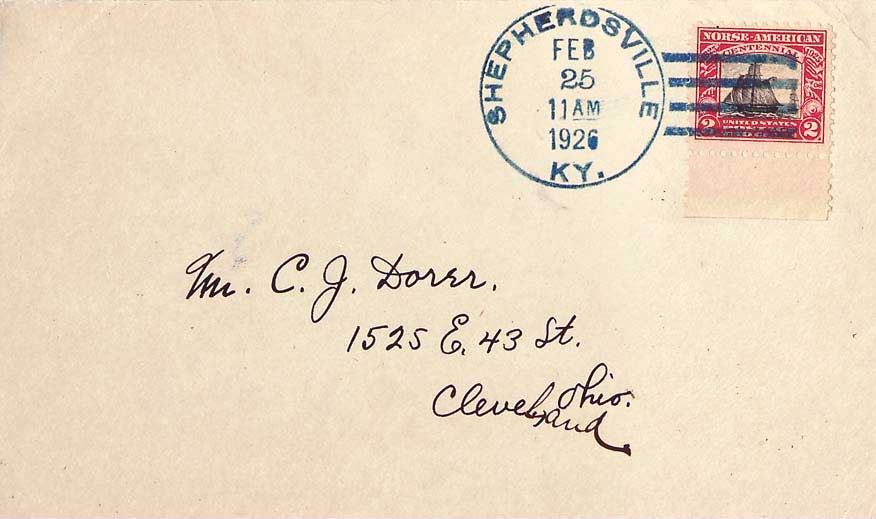 SHEPHERDSVILLE
FEB
25
11 AM
1926
KY.
NORSE-AMERICAN
CENTENNIAL
1825 1925
UNITED STATES
2 2
Mr. C. J. Dorer.
1525 E. 43 St.
Cleveland
Ohio.